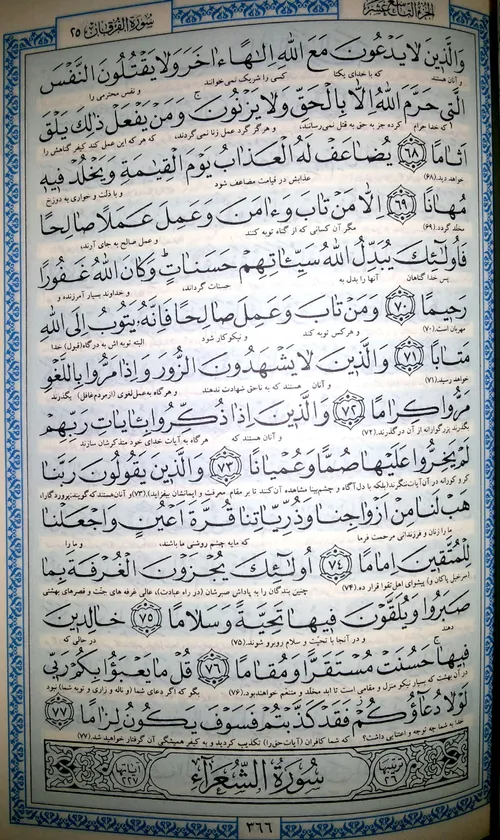 الجزء التاسع عشر
سورة الفرقان ۲۵
وَالَّذينَ لايَدْعُونَ مَعَ اللهِ اِلٰهًاءاخَرَ وَلايَقْتُلُونَ النَّفْسَ
و آنان هستند که با خدای یکتا کسی را شریک نمی‌خوانند و نفس محترمی را
الَّتي حَرَّمَ اللهُ اِلّا بِالْحَقِّ وَلايَزْنُونَ ۚ وَمَنْ يَفْعَلْ ذٰلِكَ يَلْقَ
که خدا حرام کرده جز به حق به قتل نمی‌رسانند، و هرگز گرد عمل زنا نمی‌گردند، که هر که این عمل کند کیفر گناهش را
اَثامًا ﴿۶۸﴾ يُضاعَفْ لَهُ الْعَذابُ يَوْمَ الْقِيٰمَةِ وَيَخْلُدْ فيهِ
خواهد دید. (۶۸) عذابش در قیامت مضاعف شود و با ذلت و خواری به دوزخ
مُهانًا ﴿۶۹﴾ اِلّا مَنْ تابَ وَءامَنَ وَعَمِلَ عَمَلًا صالِحًا
مخلد گردد. (۶۹) مگر آن کسانی که از گناه توبه کنند و عمل صالح به جای آرند،
فَاُولٰئِكَ يُبَدِّلُ اللهُ سَيِّئاتِهِمْ حَسَناتٍ ۗ وَكانَ اللهُ غَفُورًا
پس خدا گناهان آنها را بدل به حسنات گرداند، و خداوند بسیار آمرزنده و
رَحيمًا ﴿۷۰﴾ وَمَنْ تابَ وَعَمِلَ صالِحًا فَاِنَّهُ يَتُوبُ اِلَى اللهِ
مهربان است. (۷۰) و هرکس توبه کند و نیکوکار شود البته توبه اش به درگاه (قبول) خدا
مَتابًا ﴿۷۱﴾ وَالَّذينَ لايَشْهَدُونَ الزُّورَ وَاِذا مَرُّوا بِاللَّغْوِ
خواهد رسید. (۷۱) و آنان هستند که به ناحق شهادت ندهند و هرگاه به عمل لغوی (از مردم غافل) بگذرند
مَرُّوا كِرامًا ﴿۷۲﴾ وَالَّذينَ اِذا ذُكِّرُوا بِئاياتِ رَبِّهِمْ
بگذرند بزرگوارانه از آن درگذرند. (۷۲) و آنان هستند که هرگاه به آیات خدای خود متذکرشان سازند
لَمْ يَخِرُّوا عَلَيْها صُمًّا وَعُمْيانًا ﴿۷۳﴾ وَالَّذينَ يَقُولُونَ رَبَّنا
کر و کورانه در آن آیات ننگرند (بلکه با دل آگاه و چشم بینا مشاهده آن کنند تا بر مقام معرفت و ایمانشان بیفزاید). (۷۳) و آنان هستند که گویند پروردگارا،
هَبْ لَنا مِنْ اَزْواجِنا وَذُرِّيّاتِنا قُرَّةَ اَعْيُنٍ وَاجْعَلْنا
ما را زنان و فرزندانی مرحمت فرما که مایه چشم روشنی ما باشند، و ما را
لِلْمُتَّقينَ اِمامًا ﴿۷۴﴾ اُولٰئِكَ يُجْزَوْنَ الْغُرْفَةَ بِما
(سر خیل پاکان و) پیشوای اهل تقوا قرار ده. (۷۴) چنین بندگان را به پاداش صبرشان (در راه عبادت)، عالی غرفه های جنّت و قصرهای بهشتی
صَبَرُوا وَيُلَقَّوْنَ فيها تَحِيَّةً وَسَلامًا ﴿۷۵﴾ خالِدينَ
دهند و در آنجا با تحیّت و سلام روبرو شوند. (۷۵) در حالی که
فيها ۚ حَسُنَتْ مُسْتَقَرًّا وَمُقامًا ﴿۷۶﴾ قُلْ ما يَعْبَؤُا بِكُمْ رَبّي
در آن بهشت که بسیار نیکو منزل و مقامی است تا ابد مخلد و متنعّم خواهند بود. (۷۶) بگو که اگر دعای شما (و ناله و زاری و توبه شما) نبود
لَوْلا دُعاؤُكُمْ ۖ فَقَدْ كَذَّبْتُمْ فَسَوْفَ يَكُونُ لِزامًا ﴿۷۷﴾
خدا به شما چه توجه و اعتنایی داشت؟ که شما کافران (آیات حق را) تکذیب کردید و به کیفر همیشگی آن گرفتار خواهید شد. (۷۷)
ترتيبها ۲۶ سُورَةُ الشُّعَرَاءِ آياتها ۲۲۷
۳۶۶